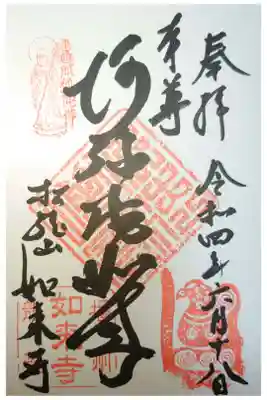 奉拝
令和四年六月十八日
本尊
阿弥陀如来
松風山
如来寺
如来寺